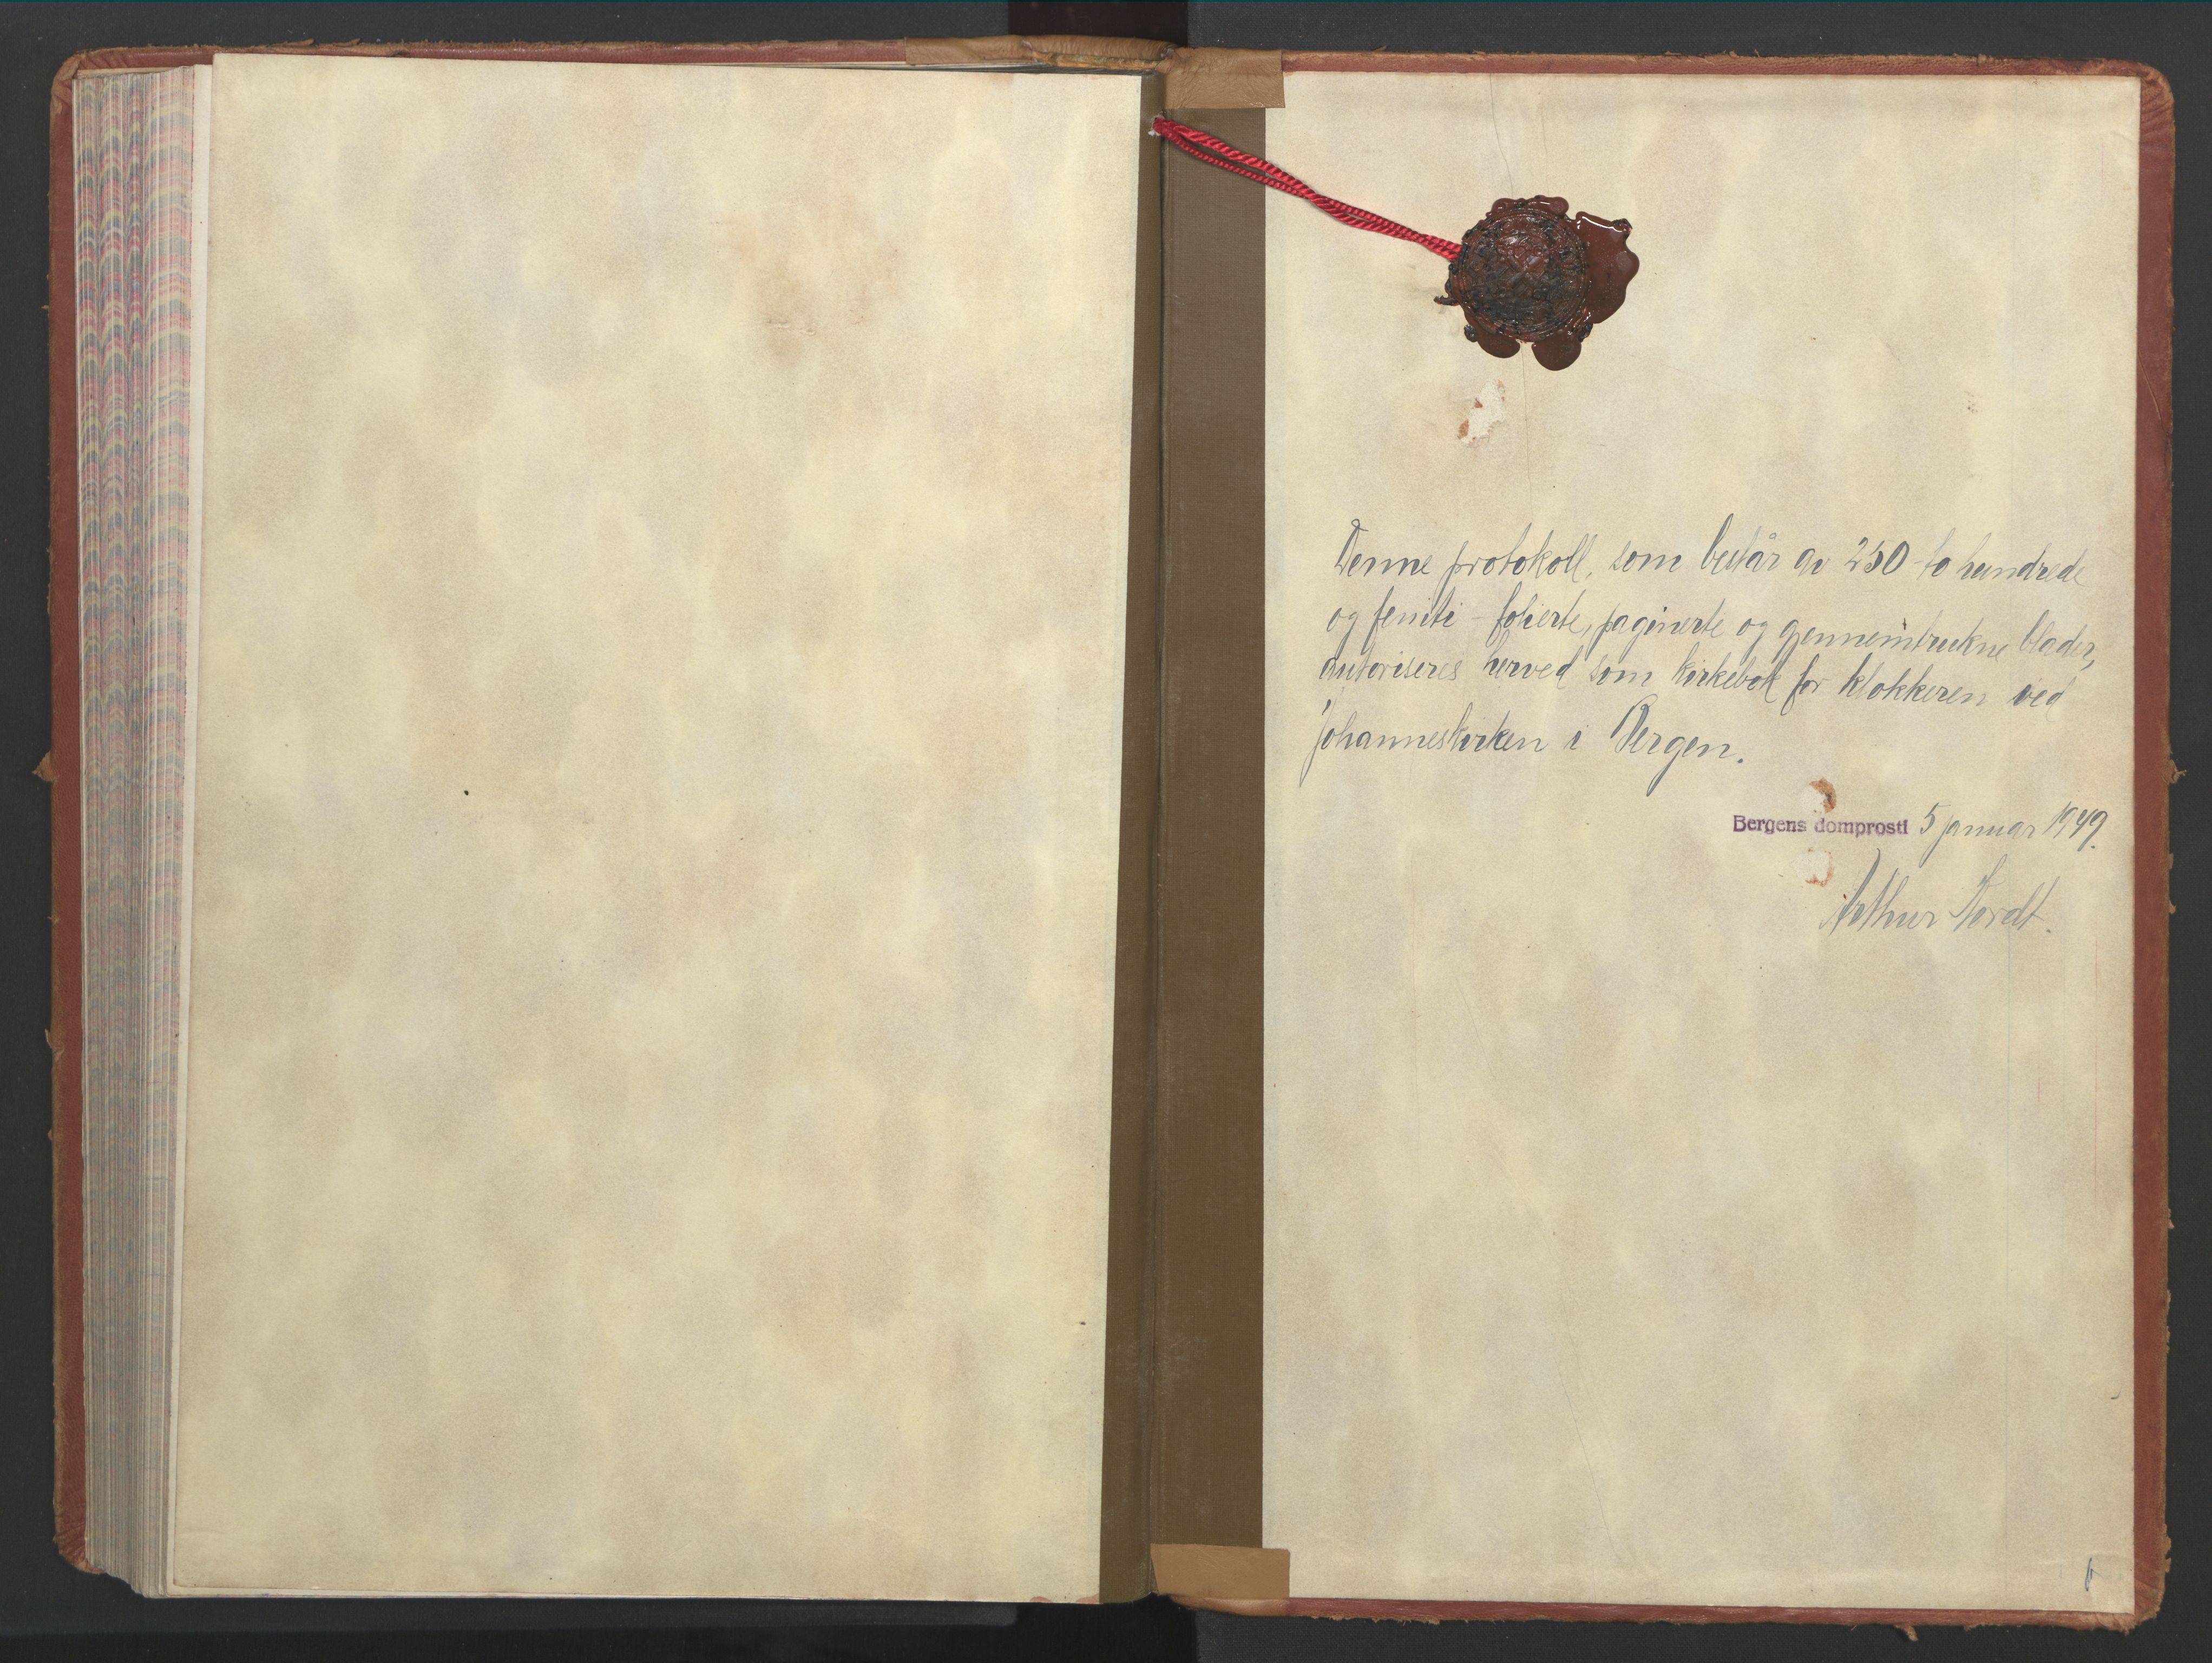 Denne protokoll, som består av 250 to hundrede
og femti - folierte, paginerte og gjennemtrukne blader,
autoriseres herved som kirkebok for klokkeren ved
Johanneskirken i Bergen.
Bergens domprosti 5 januar 1949.
Arthur Nordt.